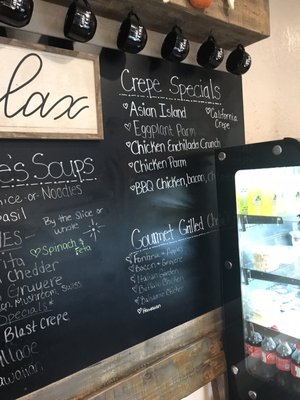 lax
Crepe Specials
♡Asian Island
♡Eggplant Parm
♡Chicken Enchilada Crunch
♡Chicken Parm
♡BBQ Chicken, bacon, ch
♡California
Crepe
e's Soups
ice or Noodles
asil
By the Slice or
whole
♡Spinach & feta
ives
ita
n Cheddar
Gruyere
on, Mushroom, Swiss
Specials
Blast Crepe
illage
awaiian
Gourmet Grilled Che
♡Fontina + Apple
♡Bacon + Gruyere
♡Italian Garden
♡Italian Chicken
♡Balsamic Chicken
♡Hawaiian